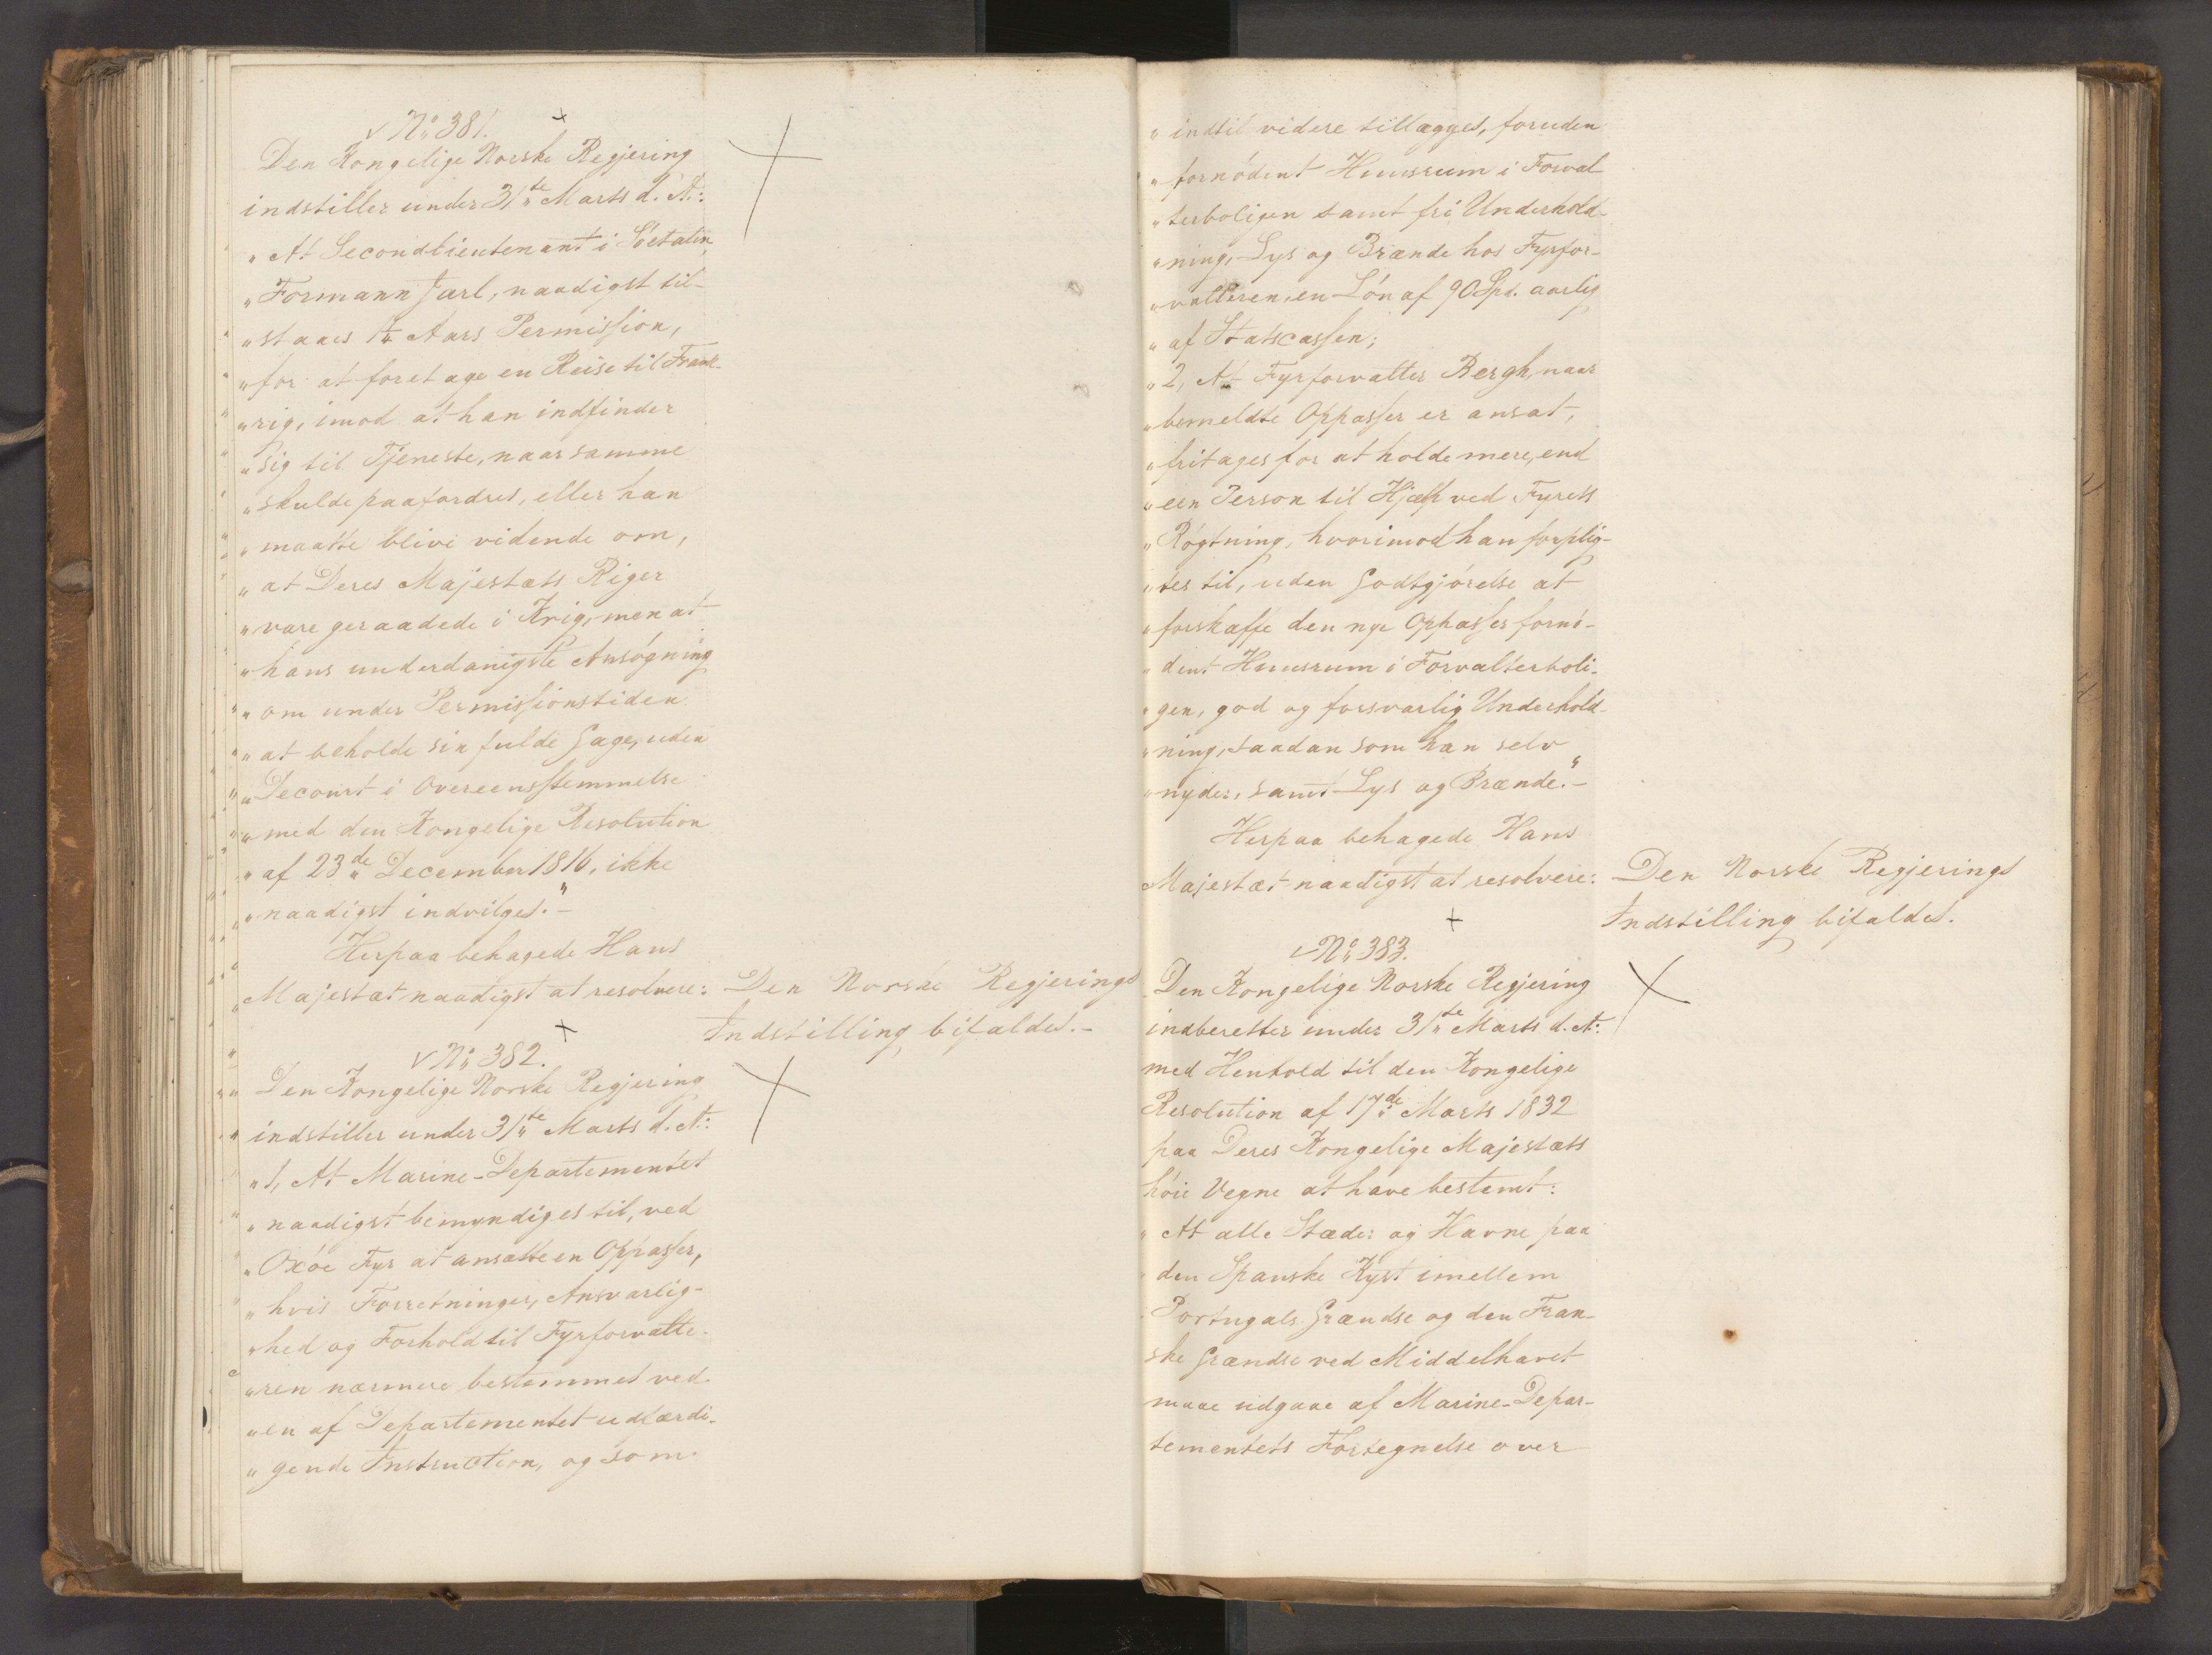 No 381.
Den Kongelige Norske Regjering
indstiller under 31te Marts d. A.:
"At Secondlieutenant i Söetaten,
"Formann Jarl, naadigst til-
"staaes Aars Permission,
"for at foretage en Reise til Frank-
"rig, imod at han indfinder
"sig til Tjeneste, naar samme
"skulde paafordres, eller han
"maatte blive vidende om,
"at Deres Majestæts Riger
"vare geraadede i Krig, men at
"hans underdanigste Ansögning
"om under Permissionstiden
"at beholde sin fulde Gage, uden
"Decourt i Overeensstemmelse
"med den Kongelige Resolution
"af 23de December 1816, ikke
"naadigst indvilges."-
Herpaa behagede Hans
Majestæt naadigst at resolvere:
Den Norske Regjerings
Indstilling bifaldes.-
No 382.
Den Kongelige Norske Regjering
indstiller under 31te Marts d. A.:
"1, At Marine-Departementet
"naadigst bemyndiges til, ved
"Oxöe Fyr at ansætte en Oppasser,
"hvis Forretninger, Ansvarlig-
"hed og Forhold til Fyrforvalte-
"ren nærmere bestemmes ved
"en af Departementet udfærdi-
"gende Instruction, og som
"indtil videre tillægges, foruden
"fornödent Huusrum i Forval-
"terboligen samt fri Underhold-
"ning, Lys og Brænde hos Fyrfor-
"valteren, en Lön af 90 Spd. aarlig
"af Statscassen;
"2, At Fyrforvalter Bergh, naar
"bemeldte Oppasser er ansat,
"fritages for at holde mere, end
"een Person til Hjælp ved Fyrets
"Rögtning, hvorimod han forplig-
"tes til, uden Godtgjörelse at
"forskaffe den nye Oppasser fornö-
"dent Huusrum i Forvalterboli-
"gen, god og forsvarlig Underhold-
"ning, saadan som han selv
"nyder, samt Lys og Brænde."-
Herpaa behagede Hans
Majestæt naadigst at resolvere:
Den Norske Regjerings
Indstilling bifaldes.
No 383.
Den Kongelige Norske Regjering
indberetter under 31te Marts d. A:
med Henhold til den Kongelige
Resolution af 17de Marts 1832
paa Deres Kongelige Majestæts
höie Vegne at have bestemt:
"At alle Stæder og Havne paa
"den Spanske Kyst imellem
Portugals Grændse og den Fran-
ske Grændse ved Middelhavet
maae udgaae af Marine-Depar-
tementets Fortegnelse over